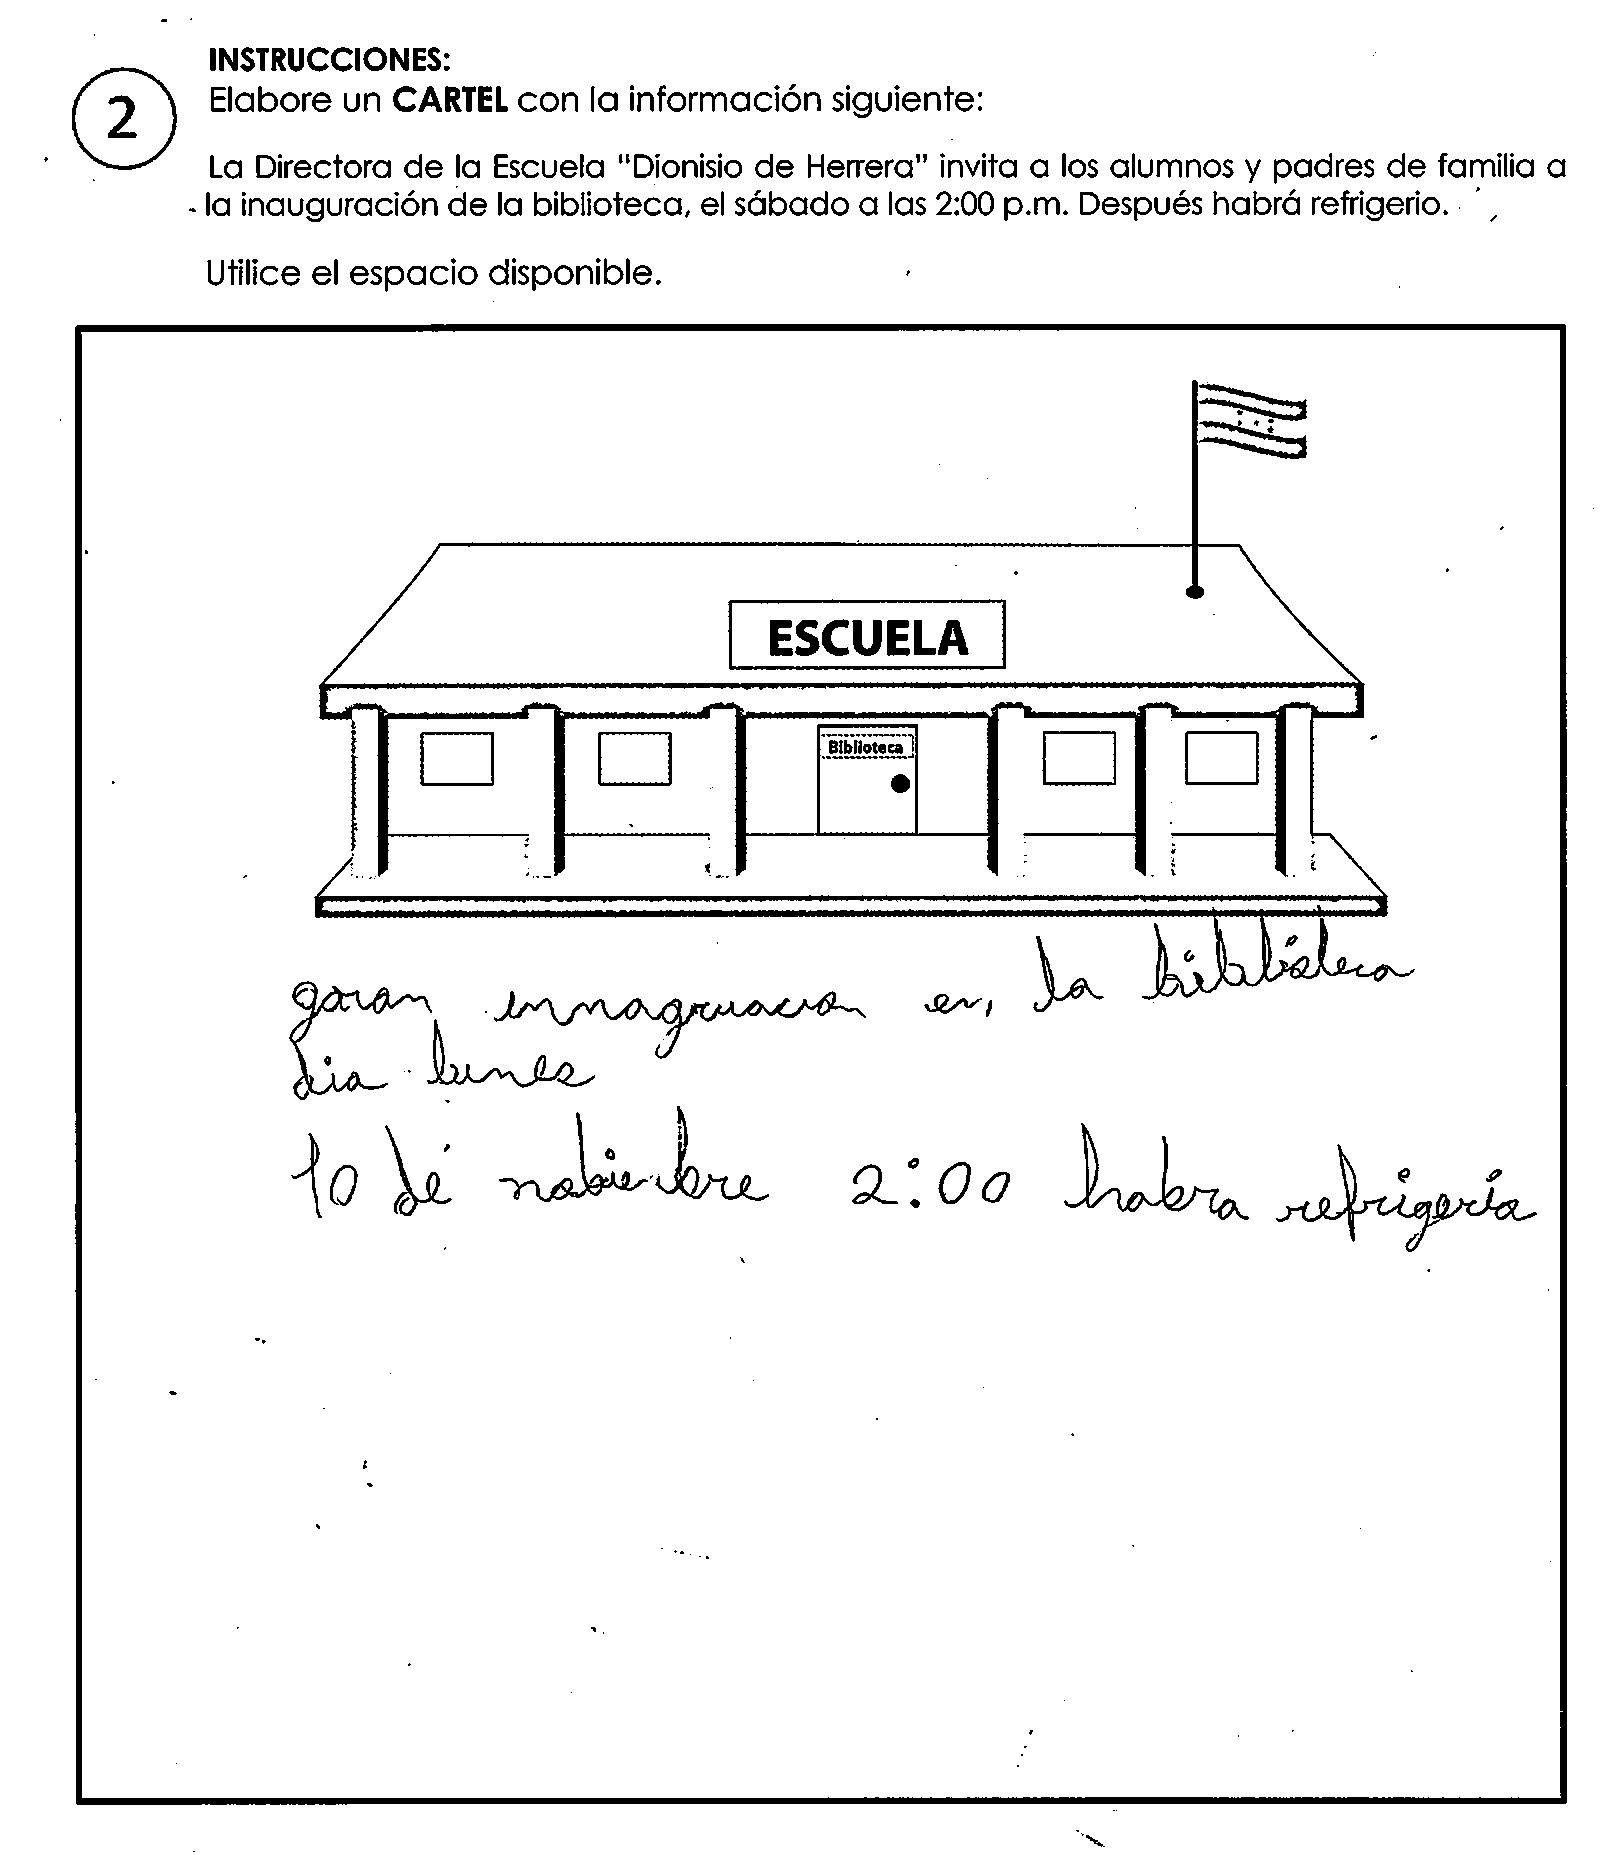 INSTRUCCIONES:
2
Elabore un CARTEL con la información siguiente:
La Directora de la Escuela "Dionisio de Herrera" invita a los alumnos y padres de familia a
la inauguración de la biblioteca, el sábado a las 2:00 p.m. Después habrá refrigerio.
Utilice el espacio disponible.
ESCUELA
Biblioteca
garan innagruacion en, la biblibteca
dia lunes
10 de nobienbre 2:00 habra refrigeria